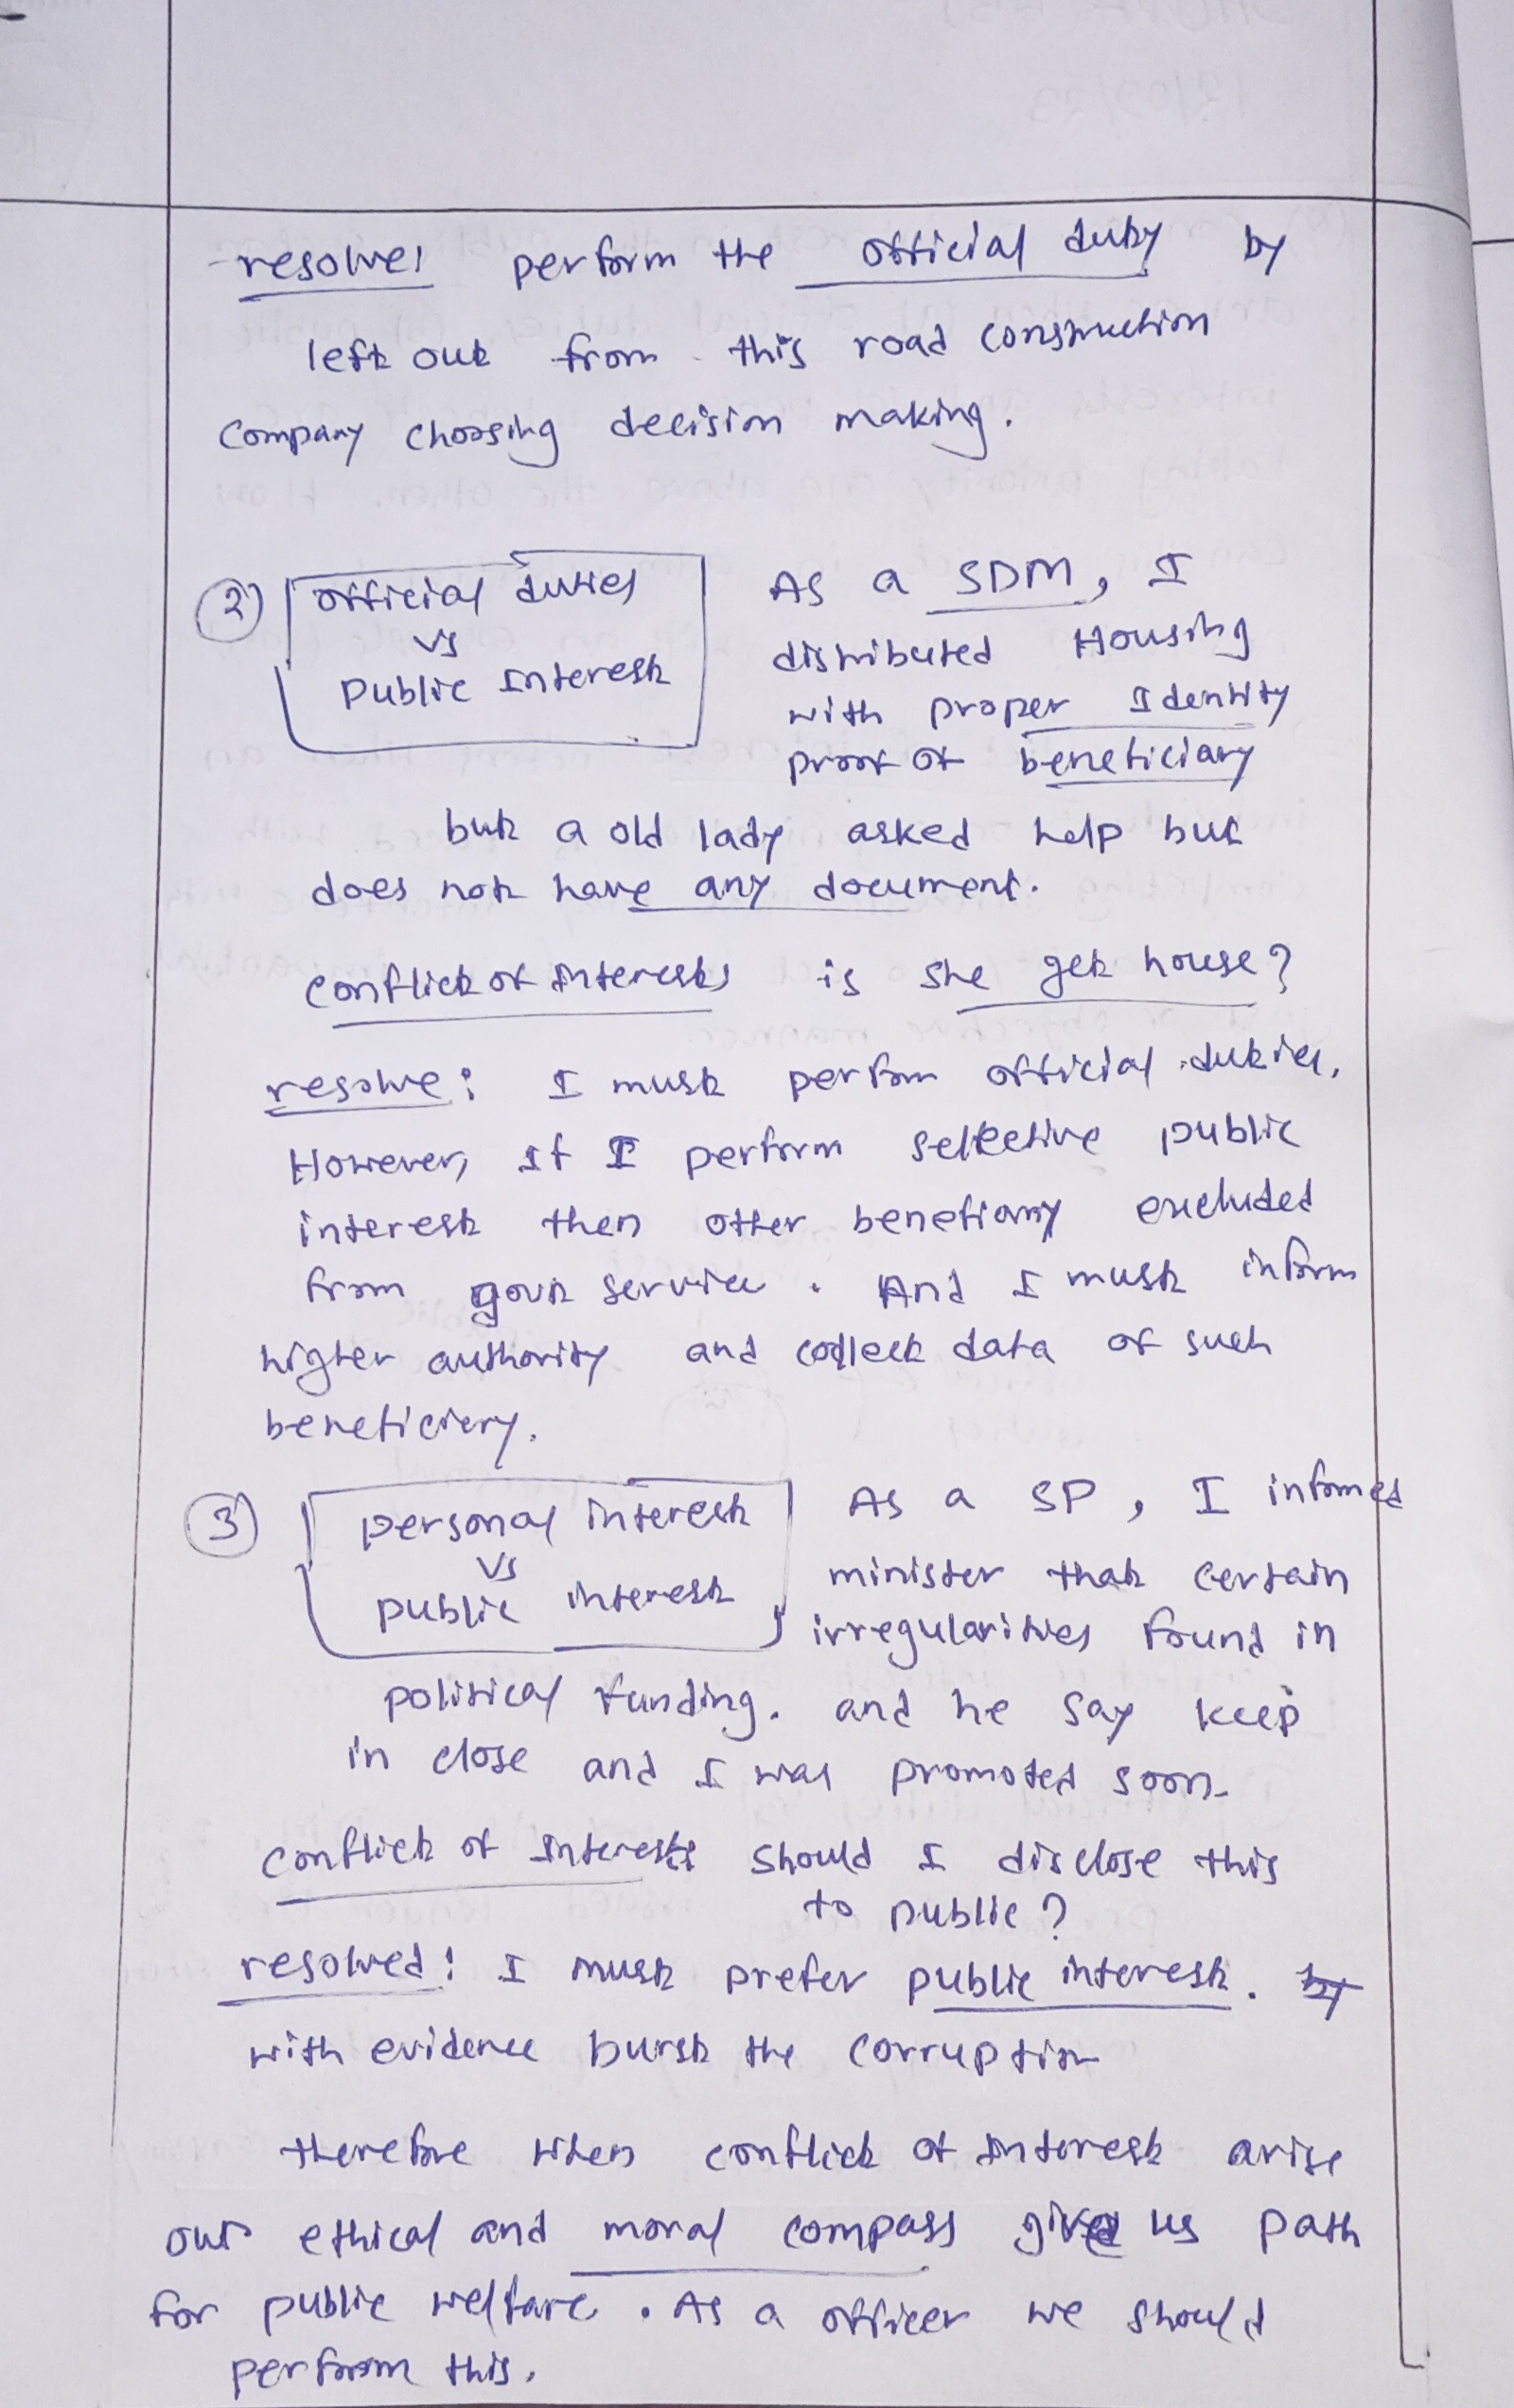 resolve: perform the official duty by
left out from this road construction
company choosing decision making.
② official duties
vs
public interest
As a SDM, I
distributed Housing
with proper Identity
proof of beneficiary
but a old lady asked help but
does not have any document.
conflict of interests is she get house?
resolve: I must perform official duties.
However, if I perform selective public
interest then other benefiary excluded
from govt service. And I must inform
higher authority and collect data of such
beneficiery.
③ personal interest
vs
public interest
As a SP, I informed
minister that certain
irregularities found in
political funding. and he say keep
in close and I was promoted soon.
conflict of interests should I disclose this
to public?
resolved: I must prefer public interest.
with evidence burst the corruption
therefore when conflict of interest arise
our ethical and moral compass gives us path
for public welfare. As a officer we should
perform this.